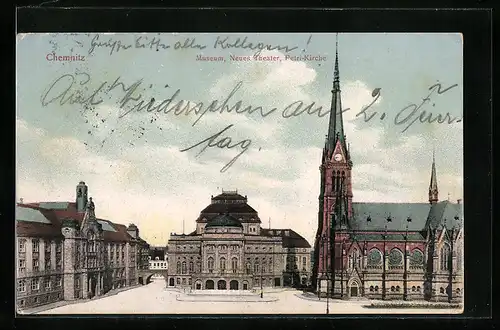 Grüß bitte alle Kollegen!
Chemnitz
Museum, Neues Theater, Petri-Kirche
Auf Wiedersehen am 2. Feier
tag